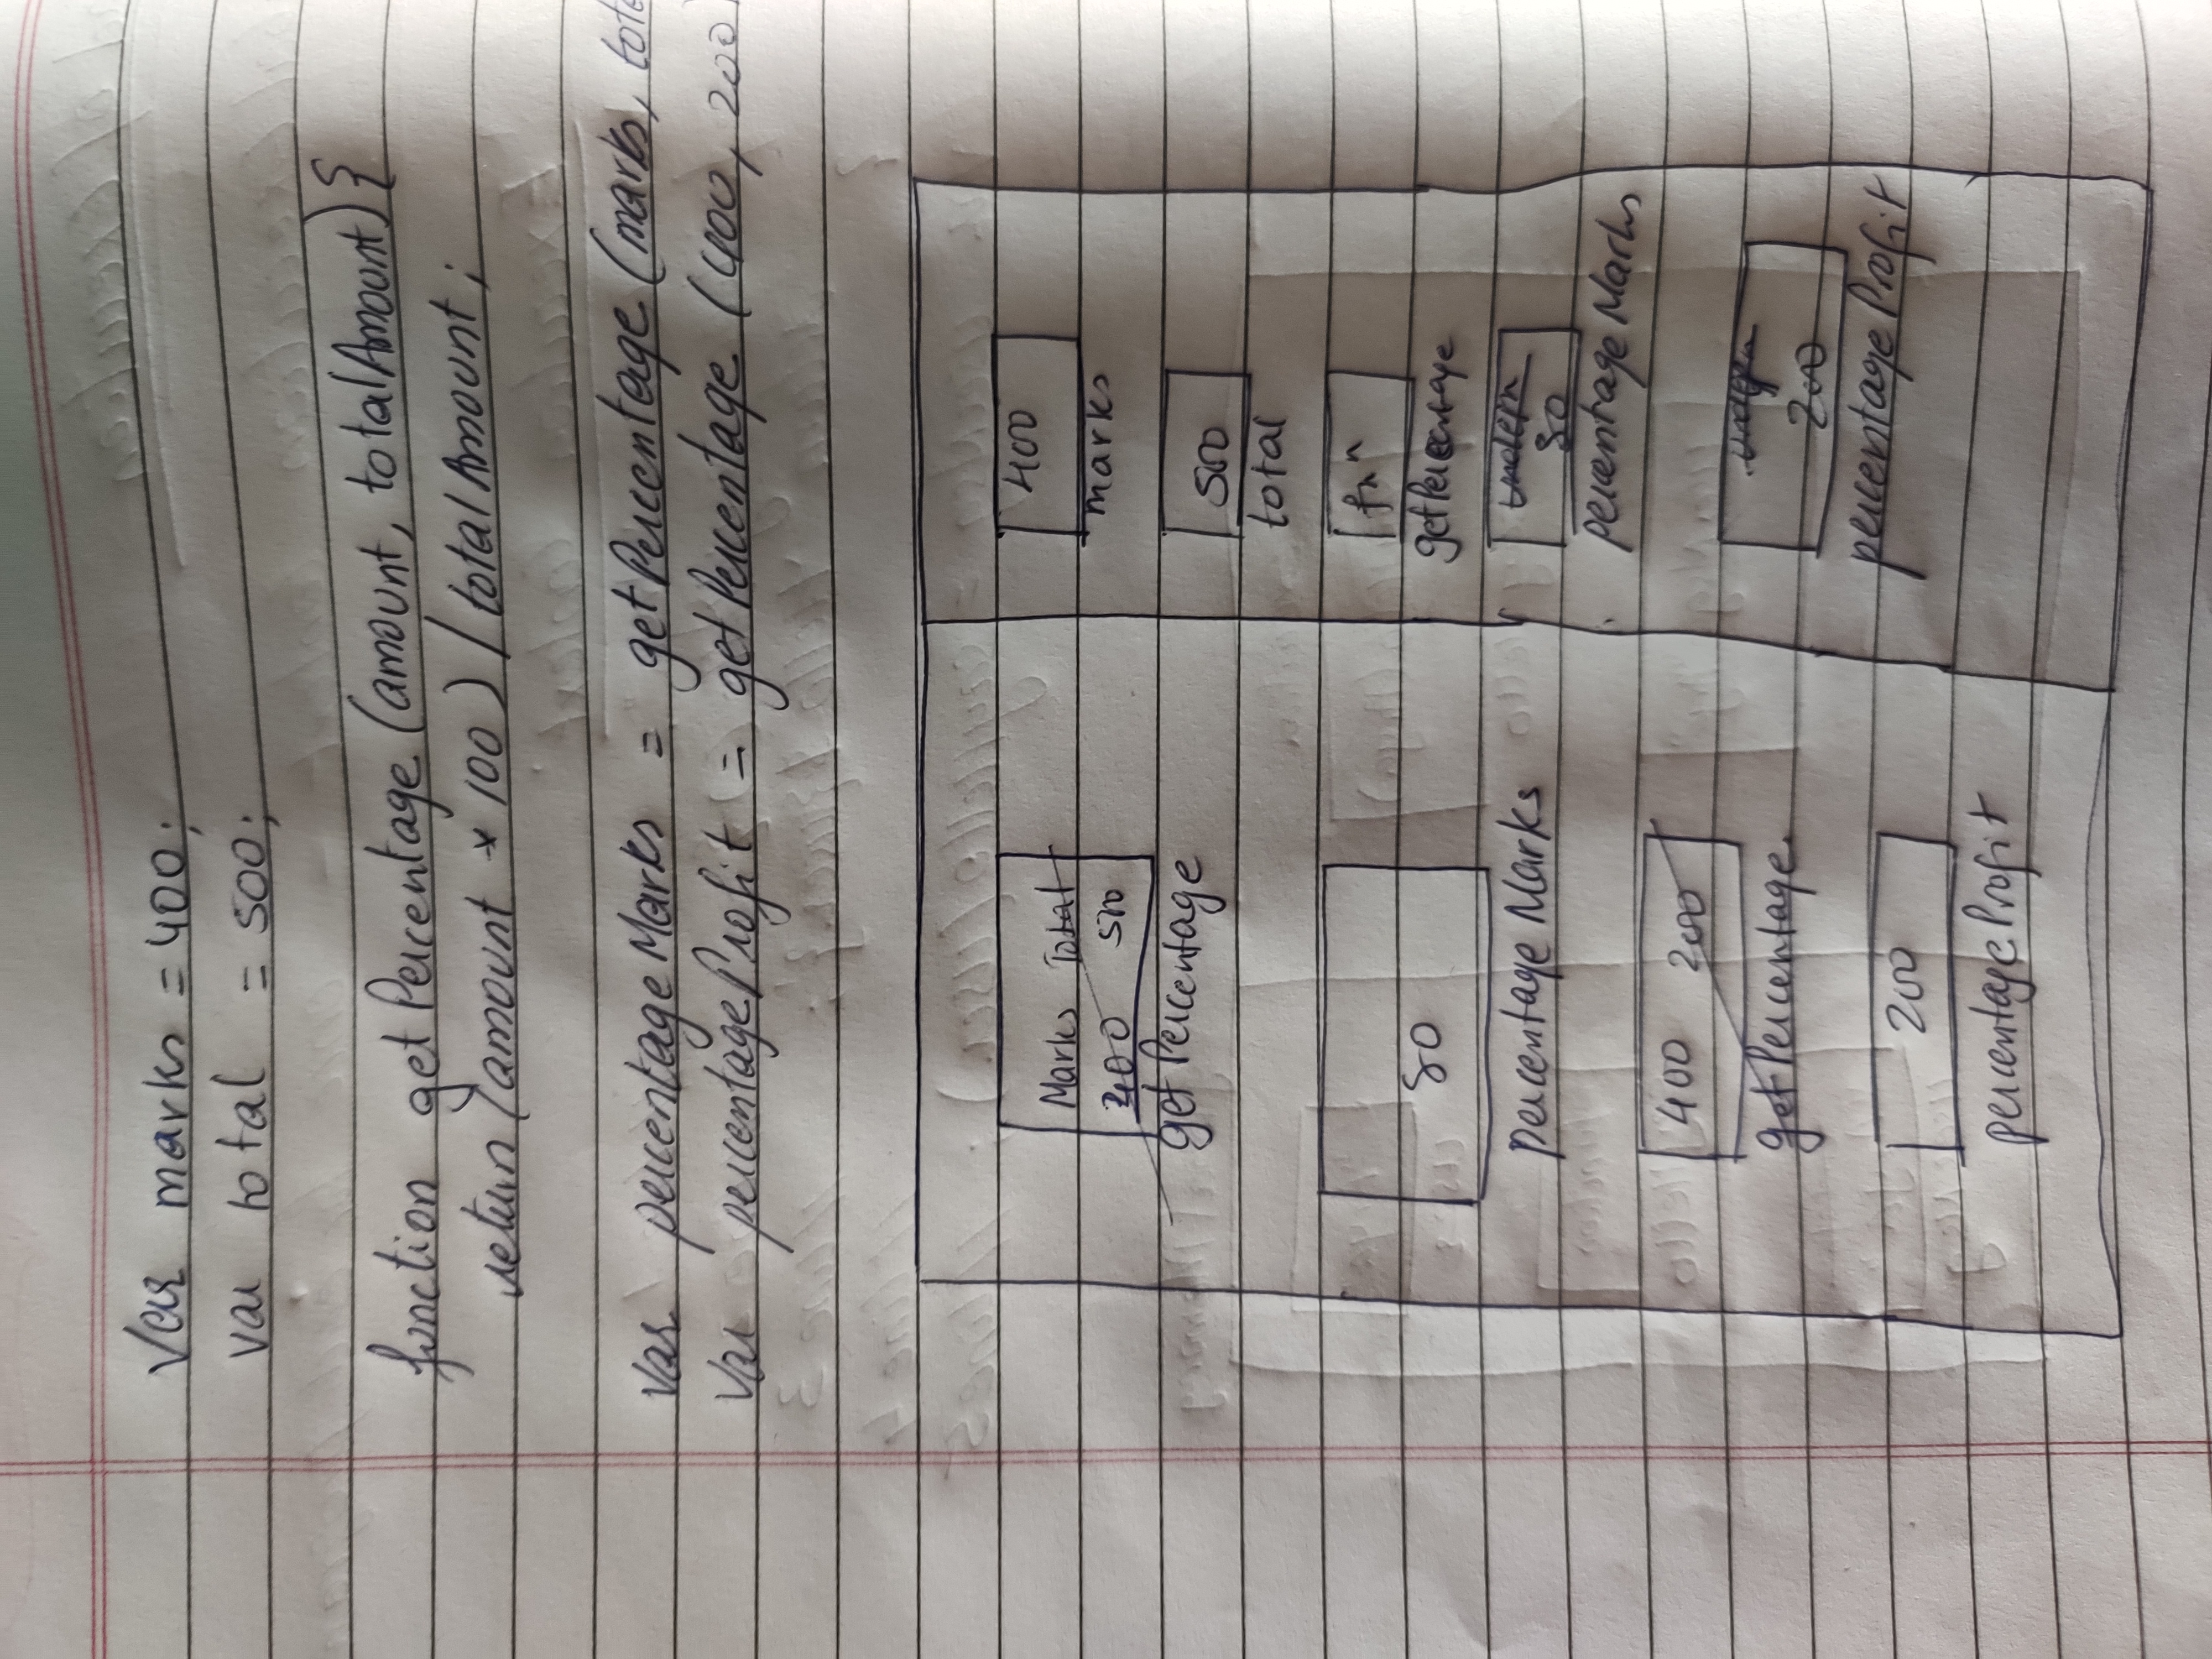 var marks = 400;
var total = 500;
function getPercentage (amount, totalAmount) {
return (amount * 100) / totalAmount;
var percentageMarks = getPercentage (marks, tota
var percentageProfit = getPercentage (400, 200)
Marks Total
400 500
getPercentage
80
percentage Marks
400 200
getPercentage.
200
percentageProfit
400
marks
500
total
fnⁿ
getPercentage
undefn
80
percentageMarks
undefn
200
percentageProfit